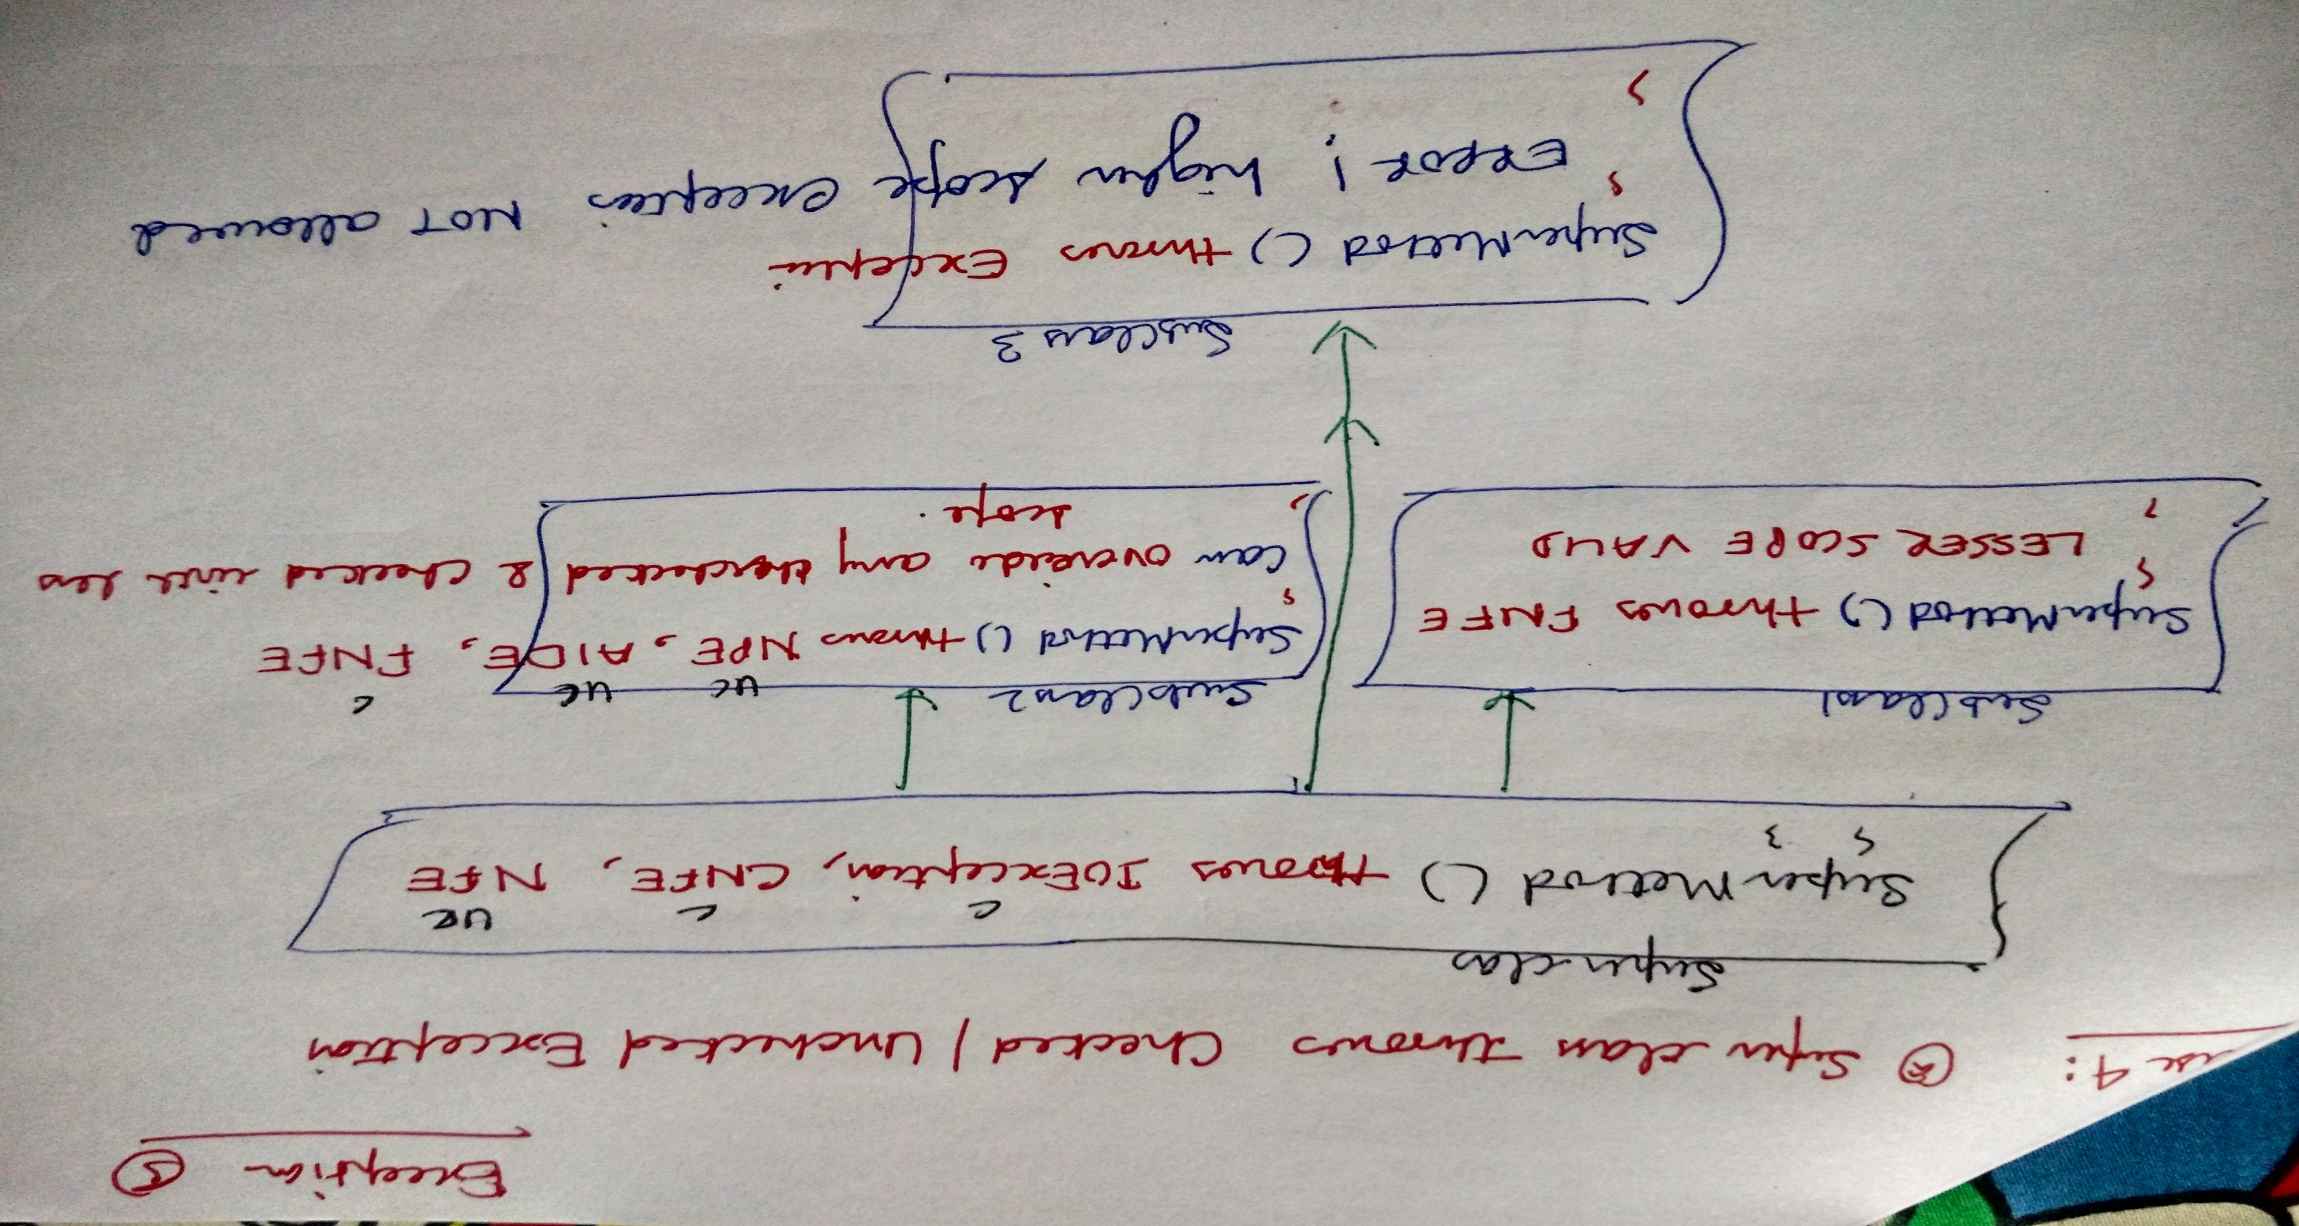 Exception ⑤
Case 4: * Super class throws Checked / Unchecked Exception
Super clas
C C UC
SuperMethod () throws IOException, CNFE, NFE
{ }
SubClass1
SuperMethod () throws FNFE
{
LESSER SCOPE VALID
}
SubClass2
UC UC C
SuperMethod () throws NPE, AIOE, FNFE
{
can override any Unchecked & checked with less
scope.
}
SubClass 3
SuperMethod () throws Exception
{
ERROR ! higher scope exception NOT allowed
}